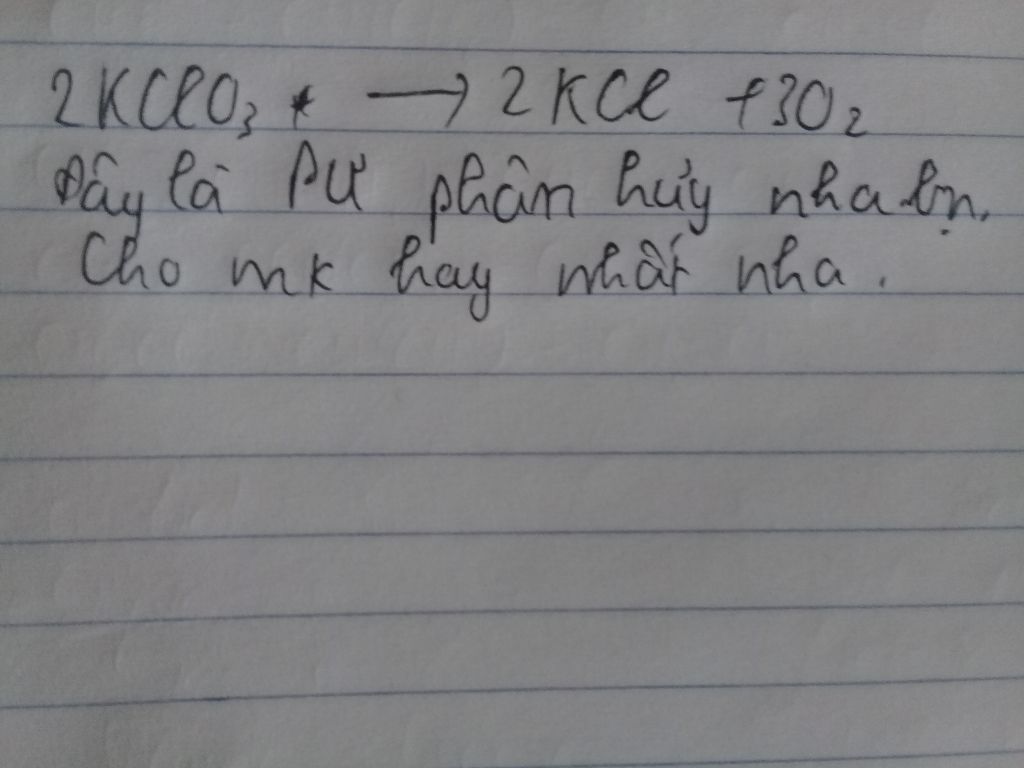 2KClO₃ → 2KCl + 3O₂
Đây là PƯ phân hủy nha bn.
Cho mk hay nhất nha.